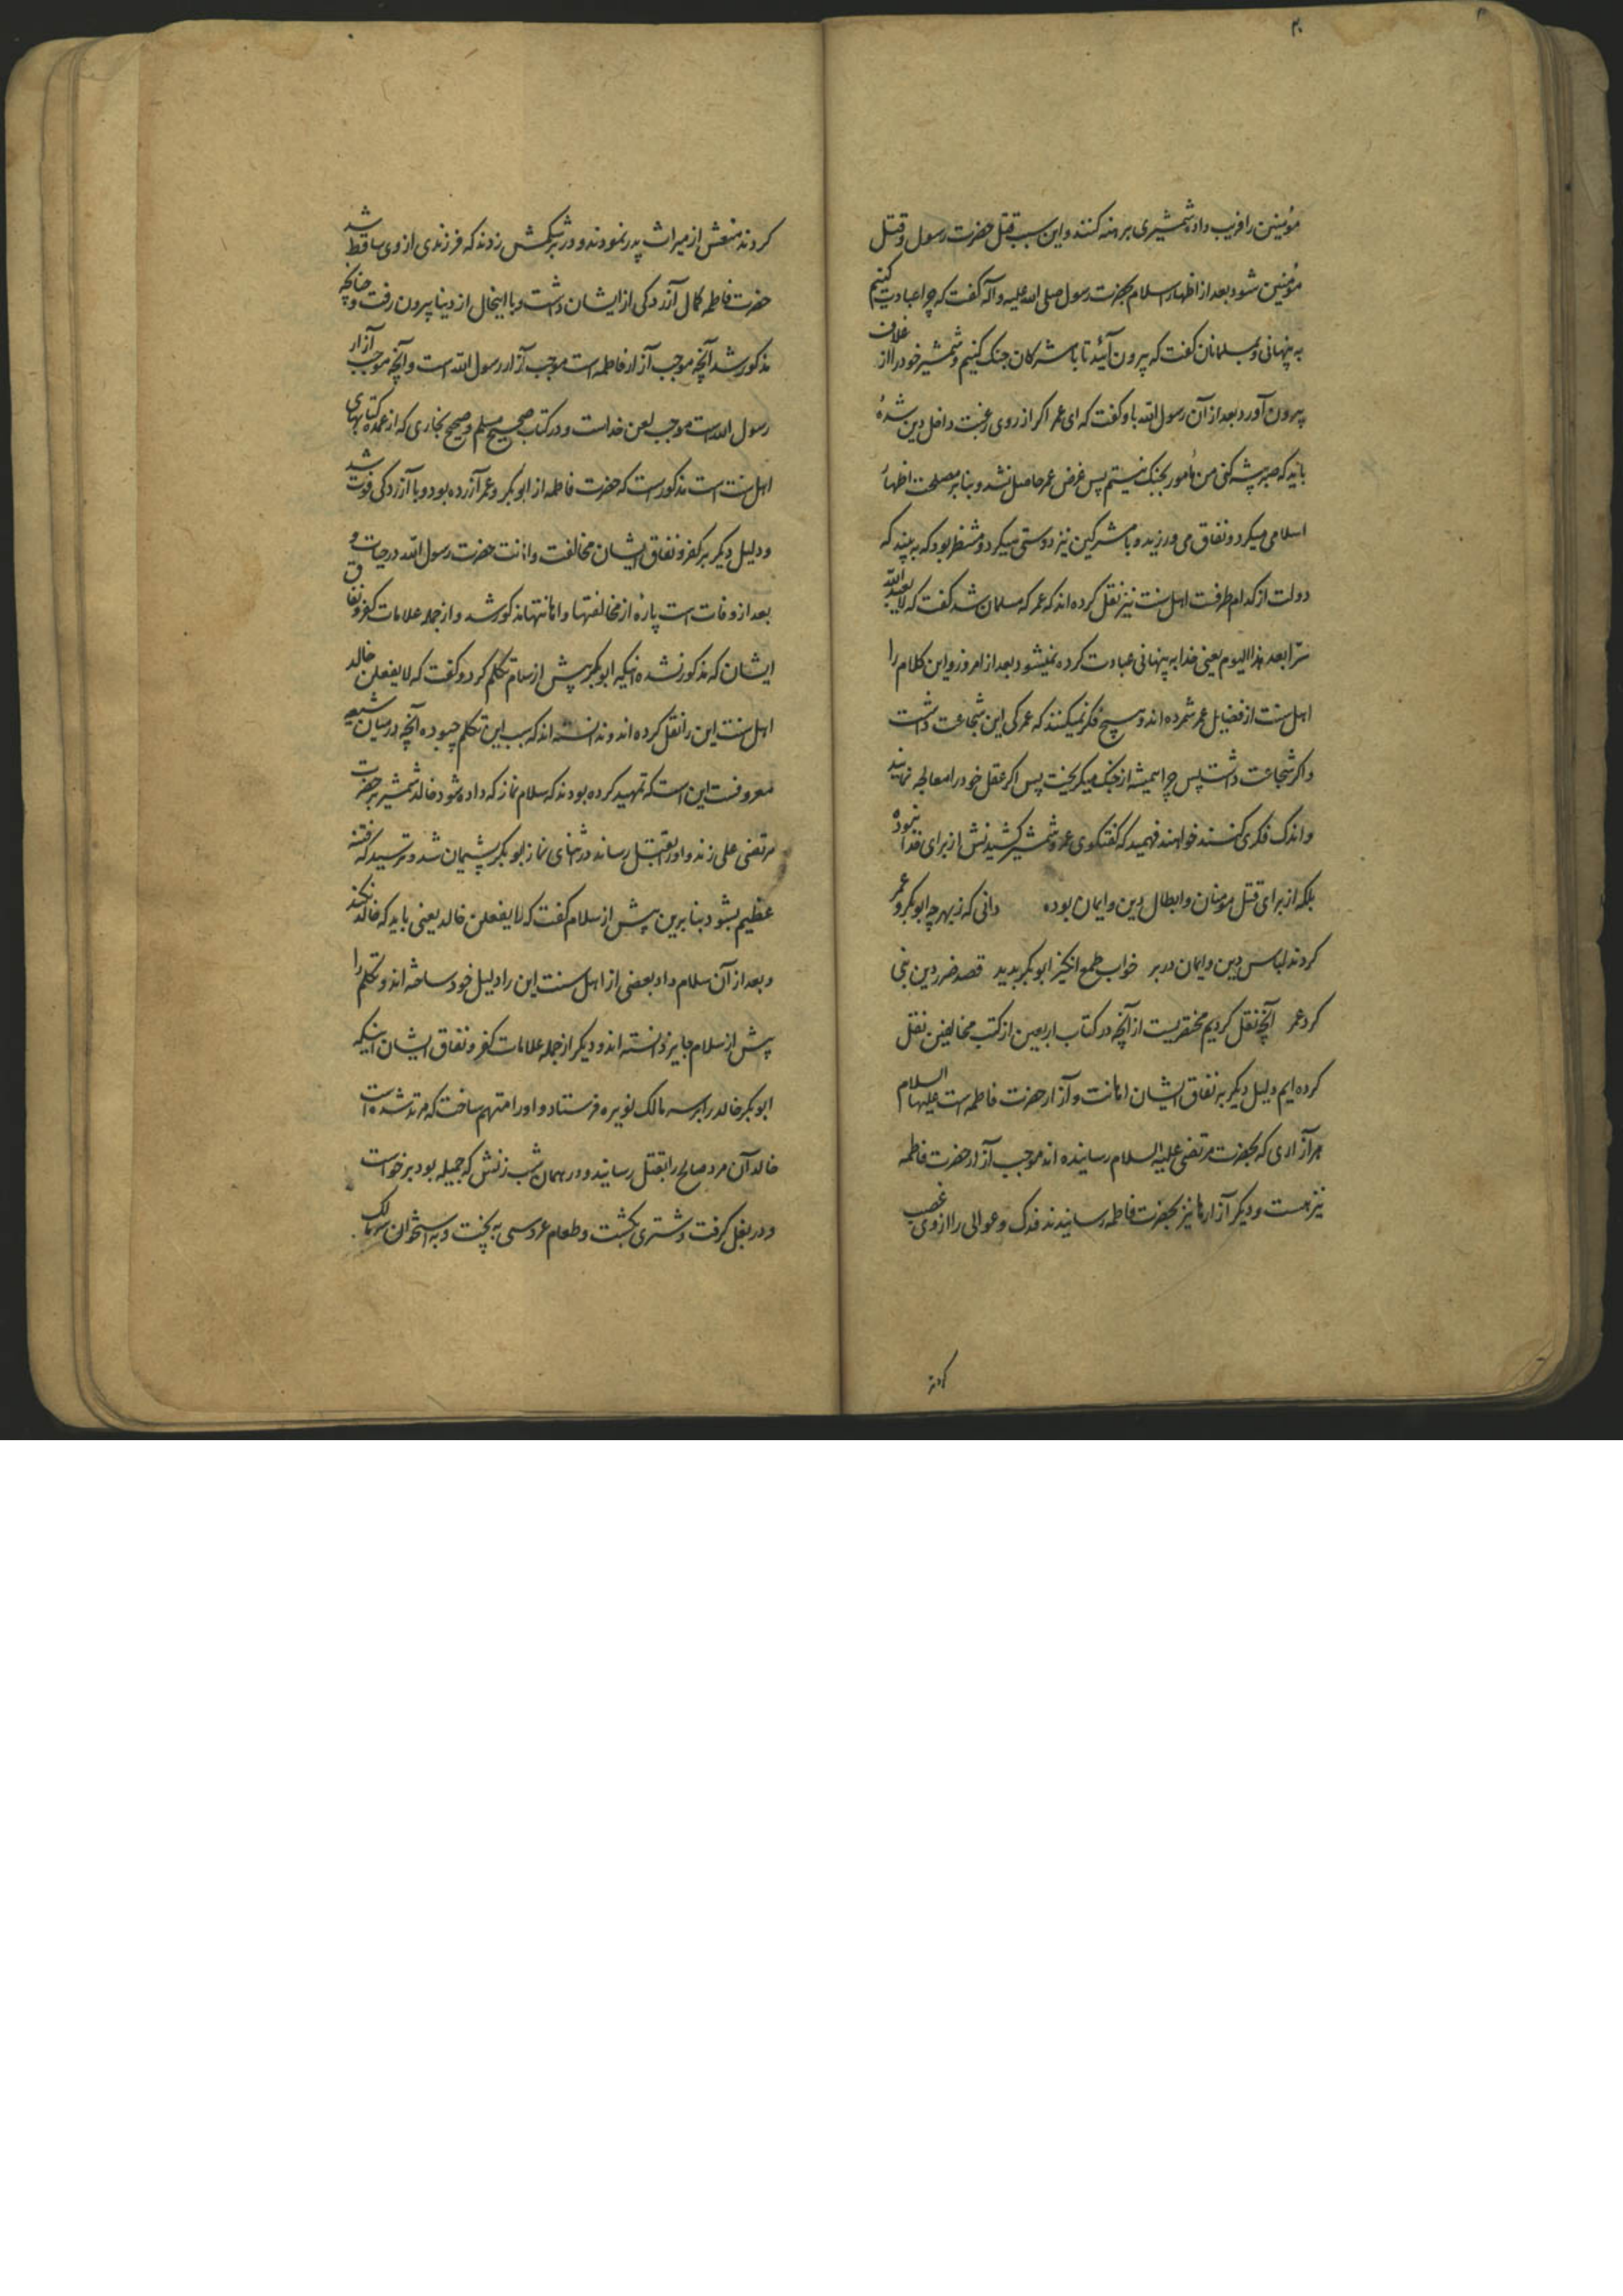 ۲۰
مؤمنین را فریب داده شمشیری برهنه کنند و این سبب قتل حضرت رسول و قتل
مؤمنین شود بعد از اظهار اسلام بحضرت رسول صلی الله علیه و آله گفت که چرا عبادت کنیم
به پنهانی و بمسلمانان گفت که بیرون آئید تا با مشرکان جنک کنیم و شمشیر خود را از غلاف
بیرون آورد بعد از آن رسول الله باو گفت که ای عمر اکر از روی رغبت داخل دین شدهٔ
باید که صبر پیشه کنی من مأمور بجنک نیستم پس غرض عمر حاصل نشد و بنابر مصلحت اظهار
اسلامی میکرد و نفاق می ورزید و با مشرکین نیز دوستی میکرد و منتظر بود که به بیند که
دولت از کدام طرفست اهل سنت نیز نقل کرده اند که عمر که مسلمان شد گفت که لا یعبد الله
سرّا بعد هذا الیوم یعنی خدا به پنهانی عبادت کرده نمیشود بعد از امروز و این کلام را
اهل سنت از فضایل عمر شمرده اند و هیچ فکر نمیکنند که عمر کی این شجاعت داشت
و اکر شجاعت داشت پس چرا همیشه از جنک میکریخت پس اکر عقل خود را معالجه نمایند
و اندک فکری کنند خواهند فهمید که گفتگوی عمر و شمشیر کشیدنش از برای خدا نبوده
بلکه از برای قتل مؤمنان و ابطال دین و ایمان بوده دانی که ز بهر چه ابوبکر و عمر
کردند لباس دین و ایمان در بر خواب طمع انکیز ابوبکر بدید قصد ضرر دین نبی
کرد عمر آنچه نقل کردیم مختصریست از آنچه در کتاب اربعین از کتب مخالفین نقل
کرده ایم دلیل دیکر بر نفاق ایشان اهانت و آزار حضرت فاطمه است علیها السلام
هر آزاری که بحضرت مرتضی علیه السلام رسانیده اند موجب آزار حضرت فاطمه
نیز هست و دیکر آزارها نیز بحضرت فاطمه رسانیدند فدک و عوالی را از وی غصب
کردند
کردند منعش از میراث پدر نمودند و در بر شکمش زدند که فرزندی از وی ساقط شد
حضرت فاطمه کمال آزردکی از ایشان داشت و با اینحال از دنیا بیرون رفت و چنانچه
مذکور شد آنچه موجب آزار فاطمه است موجب آزار رسول الله است و آنچه موجب آزار
رسول الله است موجب لعن خداست و در کتاب صحیح مسلم و صحیح بخاری که از عمده کتابهای
اهل سنت است مذکور است که حضرت فاطمه از ابوبکر و عمر آزرده بود و با آزردکی فوت شد
و دلیل دیکر بر کفر و نفاق ایشان مخالفت و اهانت حضرت رسول الله در حیات و
بعد از وفات است پارهٔ از مخالفتها و اهانتها مذکور شد و از جمله علامات کفر و نفاق
ایشان که مذکور نشده اینکه ابوبکر پیش از سلام تکلم کرد و گفت که لا یفعلن خالد
اهل سنت این را نقل کرده اند و ندانسته اند که سبب این تکلم چبوده آنچه در میان شیعه
معروفست این است که تمهید کرده بودند که سلام نماز که داده شود خالد شمشیر بر حضرت
مرتضی علی زند و او را بقتل رساند در اثنای نماز ابوبکر پشیمان شد و ترسید که فتنه
عظیم بشود بنابرین پیش از سلام گفت که لا یفعلن خالد یعنی باید که خالد نکند
و بعد از آن سلام داد بعضی از اهل سنت این را دلیل خود ساخته اند و تکلم را
پیش از سلام جایز دانسته اند و دیکر از جمله علامات کفر و نفاق ایشان اینکه
ابوبکر خالد را بر سر مالک نویره فرستاد و او را متهم ساخت که مرتد شده است
خالد آن مرد صالح را بقتل رسانید و در همان شب زنش که جمیله بود بر خواست
و در بغل کرفت و شتری بکشت و طعام عروسی به پخت و به استخوان سر مالک